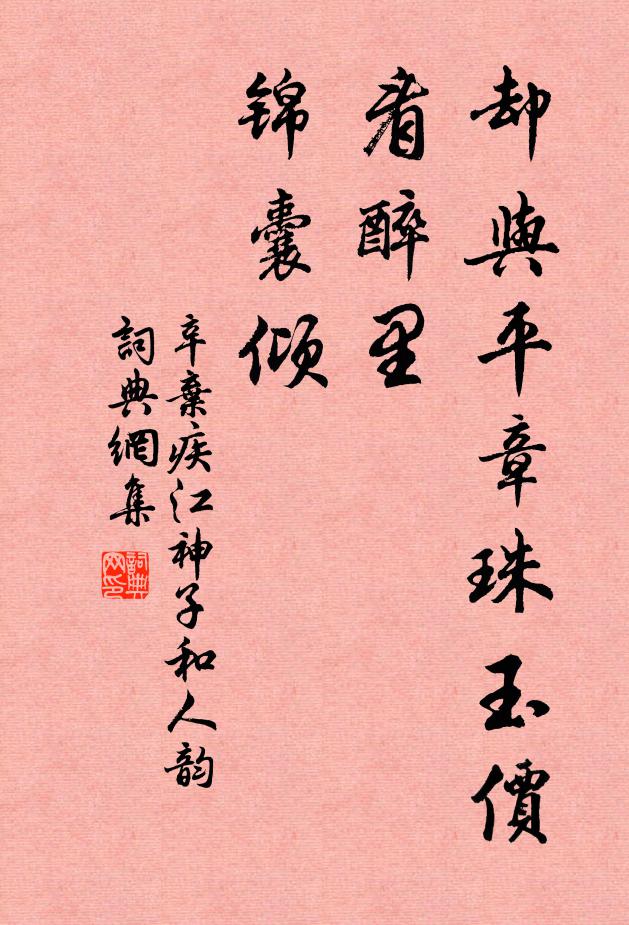 却與平章珠玉價
看醉里
锦囊倾
辛棄疾江神子和人韵
詞典網集
詞典网印